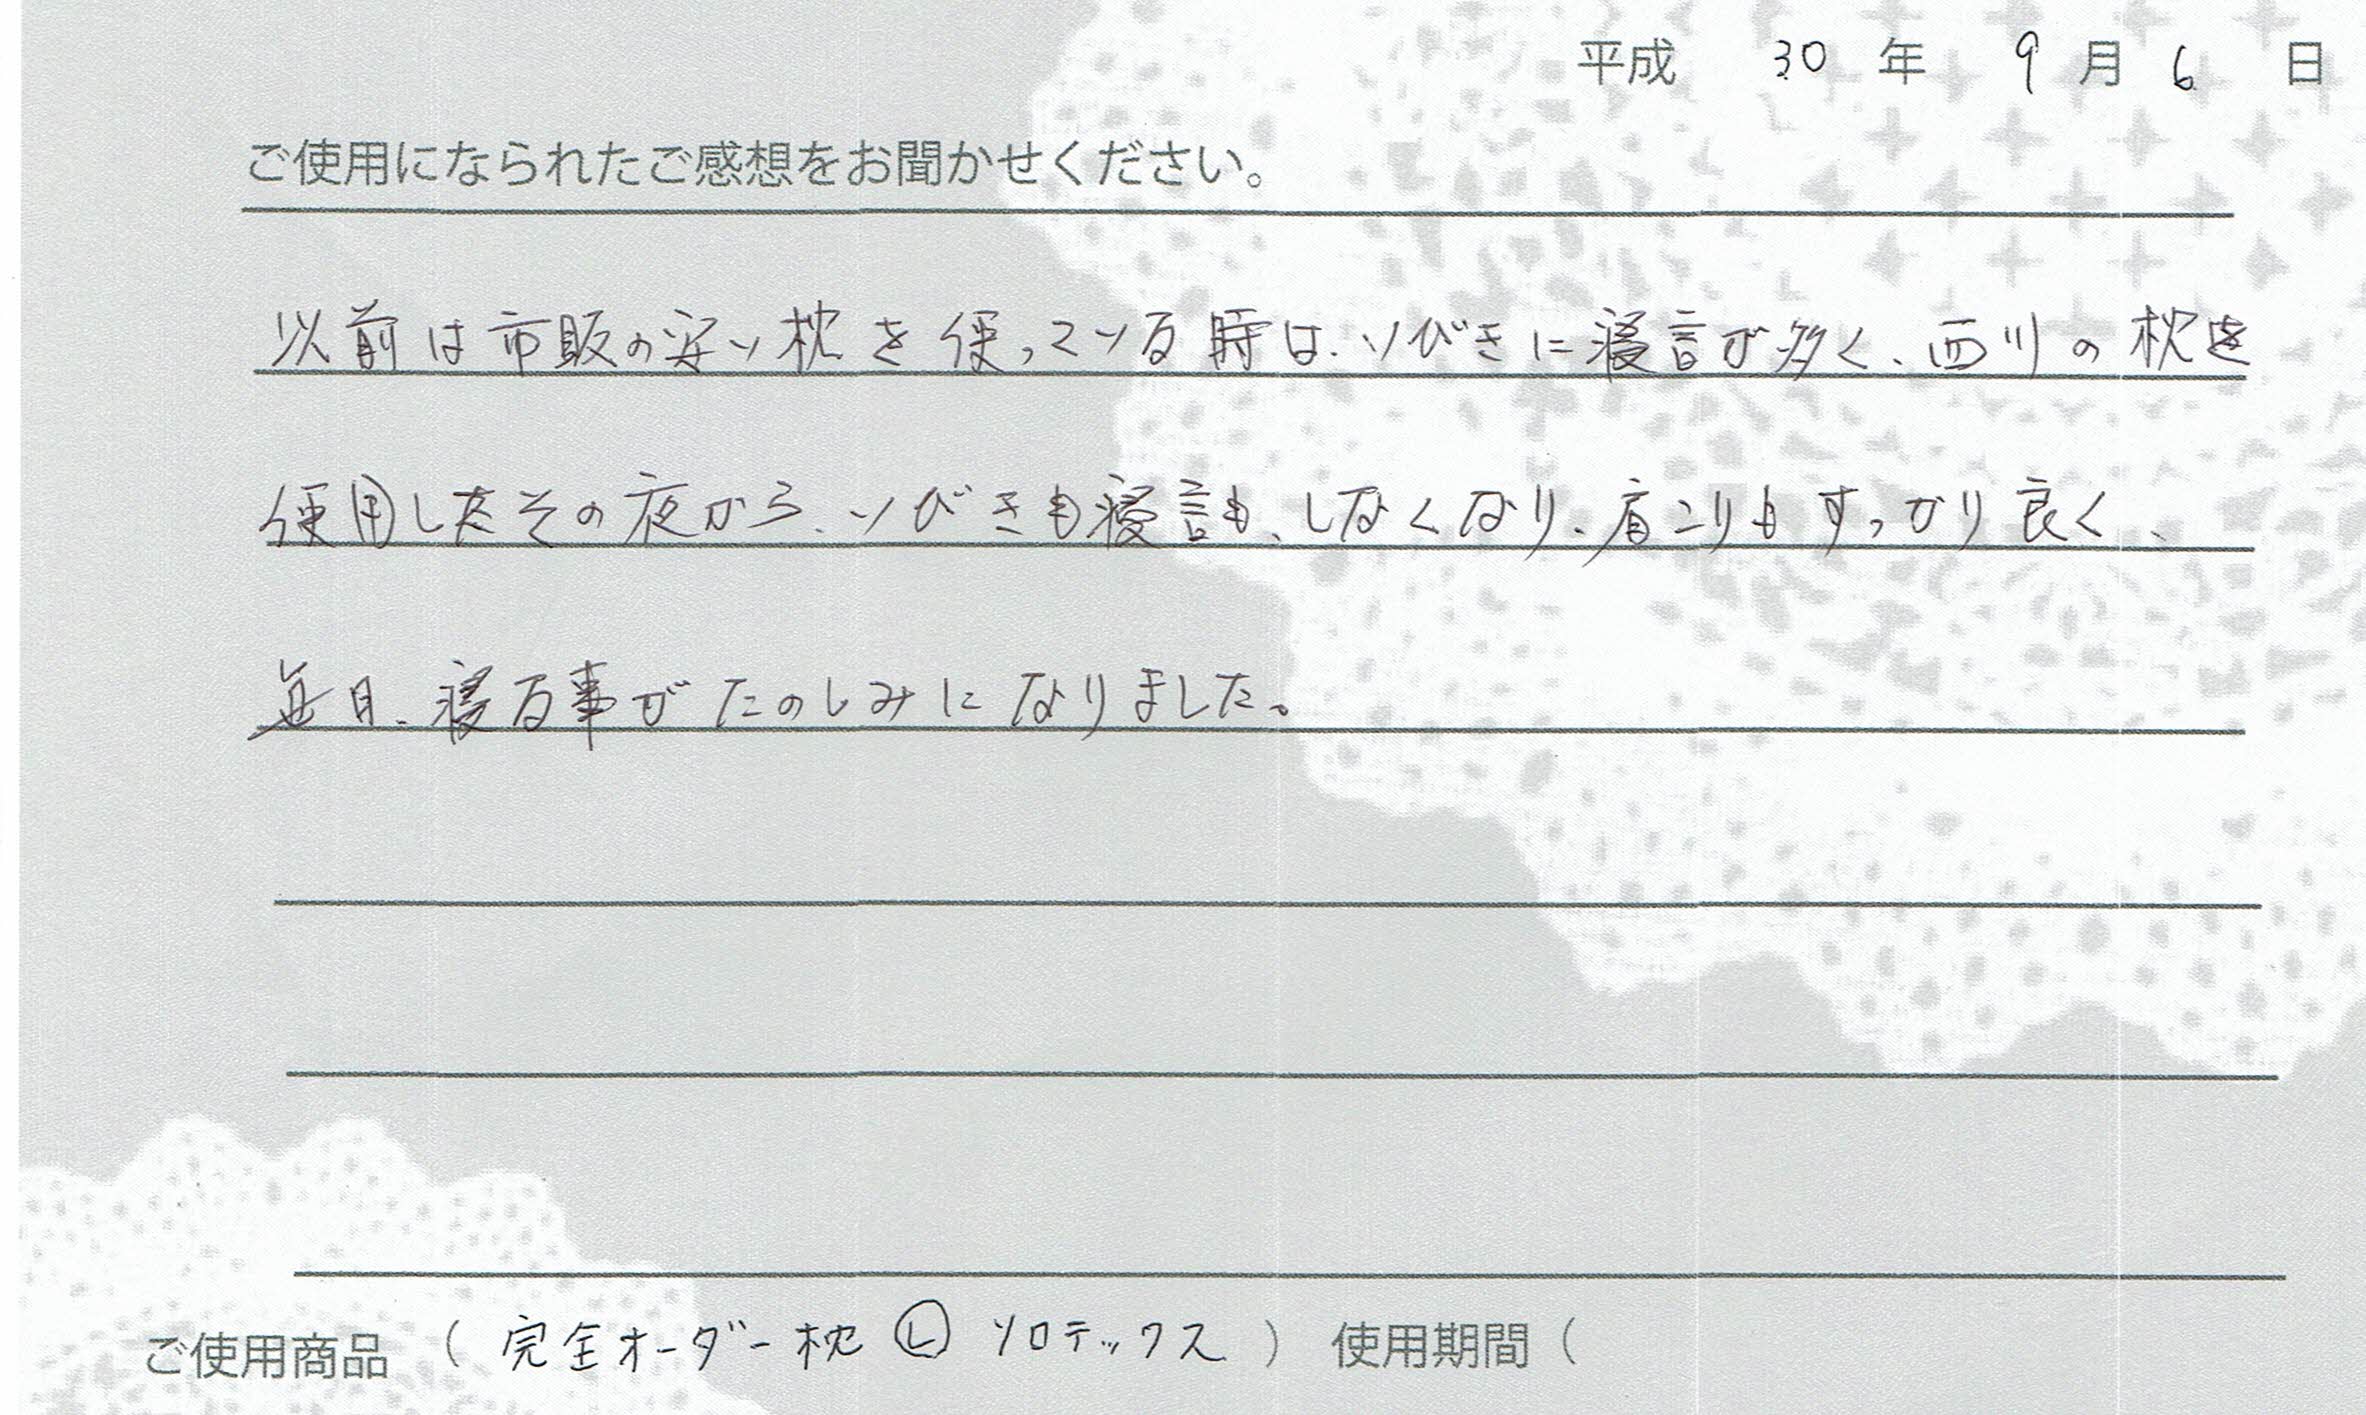 平成 30 年 9 月 6 日
ご使用になられたご感想をお聞かせください。
以前は市販の安い枕を使っている時は、いびきに寝言が多く、西川の枕を
使用したその夜から、いびきも寝言も、しなくなり、肩こりもすっかり良く、
毎日、寝る事がたのしみになりました。
ご使用商品 ( 完全オーダー枕 Ⓛ ソロテックス ) 使用期間 (